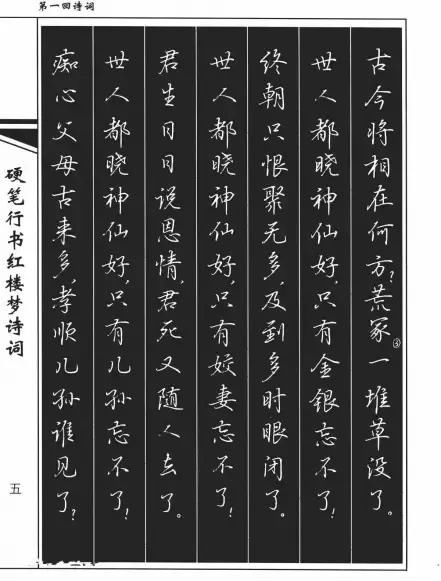 第一回诗词
古今将相在何方?荒冢一堆草没了。
③
世人都晓神仙好,只有金银忘不了!
终朝只恨聚无多,及到多时眼闭了。
世人都晓神仙好,只有姣妻忘不了!
君生日日说恩情,君死又随人去了。
世人都晓神仙好,只有儿孙忘不了!
痴心父母古来多,孝顺儿孙谁见了?
硬笔行书红楼梦诗词
五